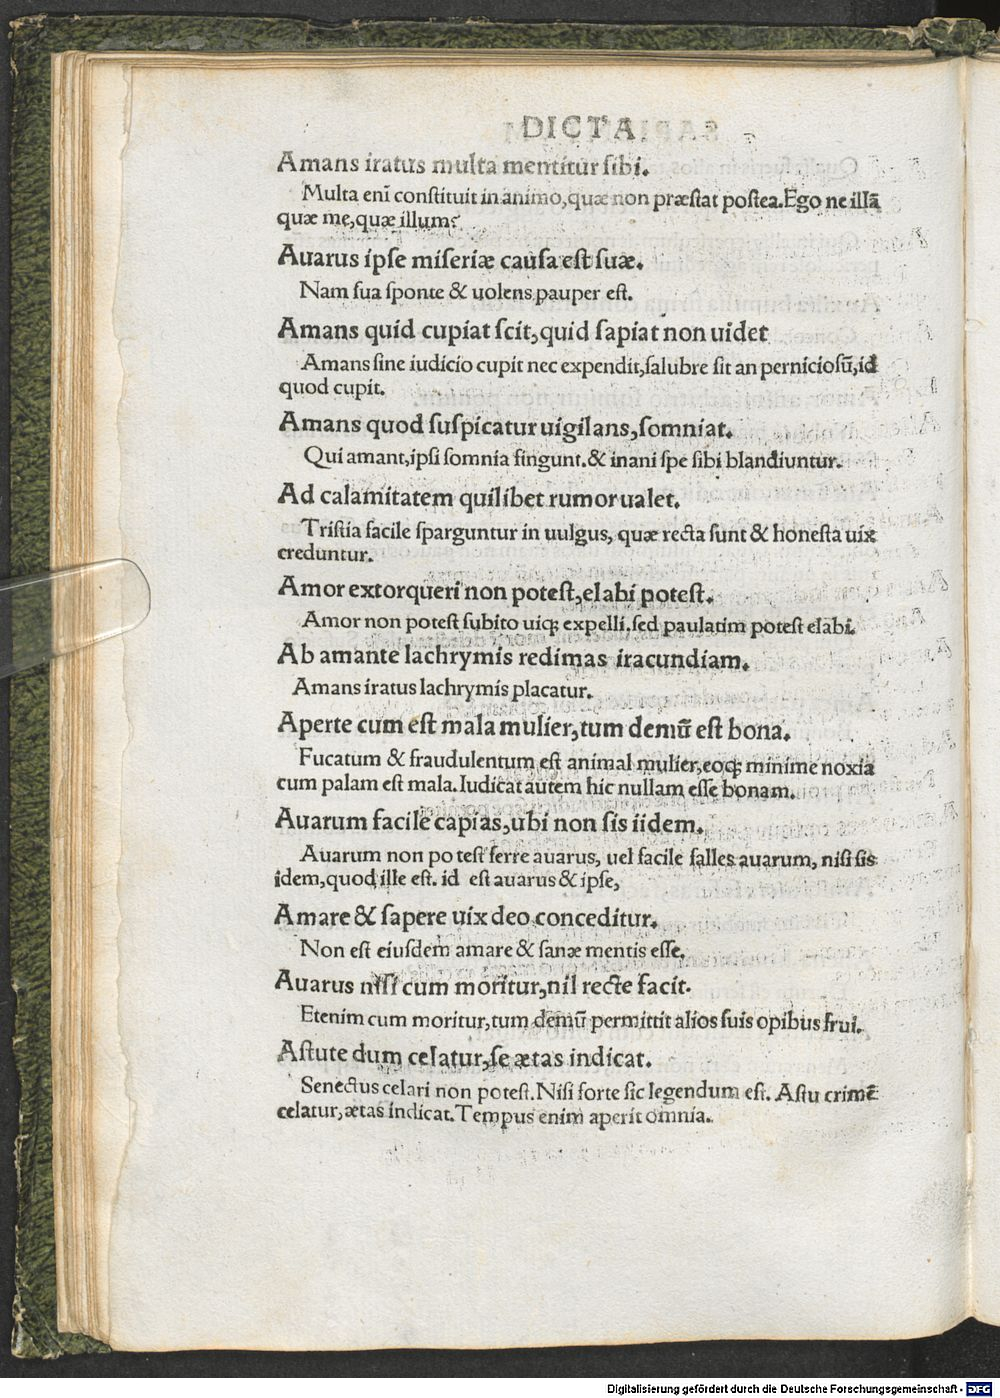 DICTA
Amans iratus multa mentitur sibi.
Multa enī constituit in animo, quæ non præstat postea. Ego ne illā
quæ me, quæ illum?
Auarus ipse miseriæ causa est suæ.
Nam sua sponte & uolens pauper est.
Amans quid cupiat scit, quid sapiat non uidet
Amans sine iudicio cupit nec expendit, salubre sit an perniciosū, id
quod cupit.
Amans quod suspicatur uigilans, somniat.
Qui amant, ipsi somnia fingunt. & inani spe sibi blandiuntur.
Ad calamitatem quilibet rumor ualet.
Tristia facile sparguntur in uulgus, quæ recta sunt & honesta uix
creduntur.
Amor extorqueri non potest, elabi potest.
Amor non potest subito uiqꝫ expelli. sed paulatim potest elabi.
Ab amante lachrymis redimas iracundiam.
Amans iratus lachrymis placatur.
Aperte cum est mala mulier, tum demū est bona.
Fucatum & fraudulentum est animal mulier, eoqꝫ minime noxia
cum palam est mala. Iudicat autem hic nullam esse bonam.
Auarum facile capias, ubi non sis iidem.
Auarum non po test ferre auarus, uel facile falles auarum, nisi sis
idem, quod ille est. id est auarus & ipse,
Amare & sapere uix deo conceditur.
Non est eiusdem amare & sanæ mentis esse.
Auarus nisi cum moritur, nil recte facit.
Etenim cum moritur, tum demū permittit alios suis opibus frui.
Astute dum celatur, se ætas indicat.
Senectus celari non potest. Nisi forte sic legendum est. Astu crimē
celatur, ætas indicat. Tempus enim aperit omnia.
Digitalisierung gefördert durch die Deutsche Forschungsgemeinschaft - DFG